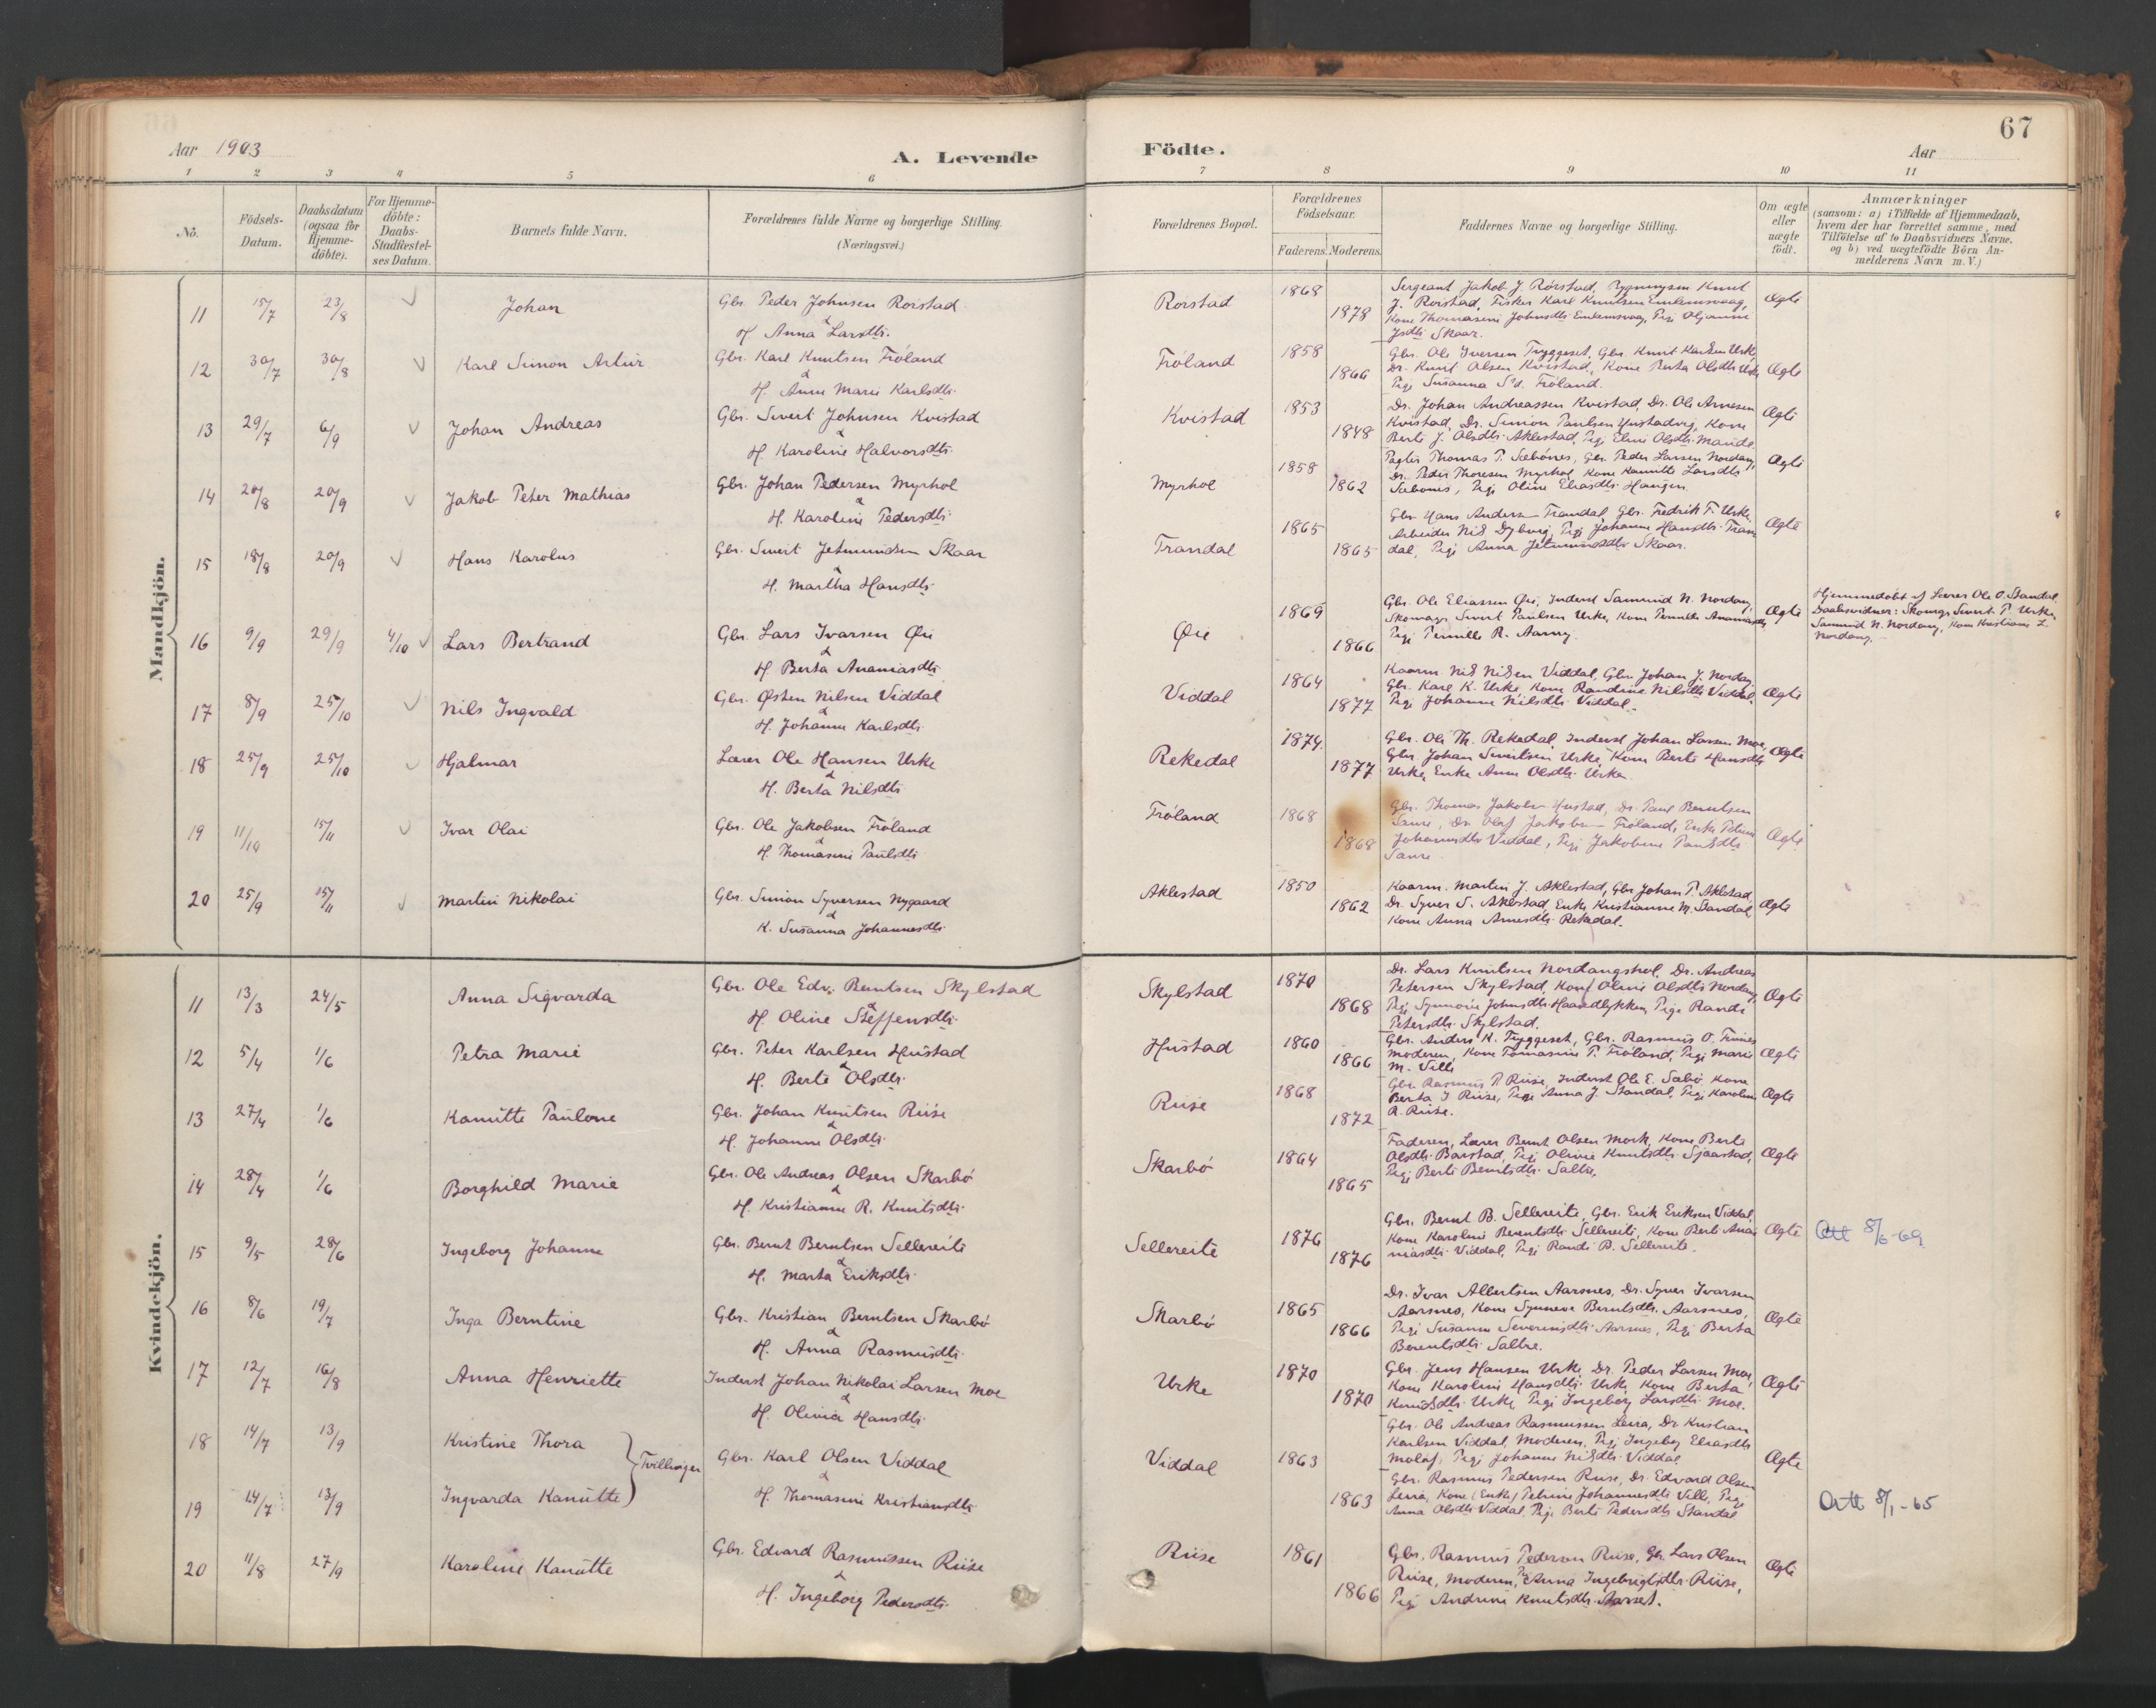 67
Aar 1903
A. Levende Födte.
Aar
1 2 3 4 5 6 7 8 9 10 11
No.
Födsels-Datum.
Daabsdatum (ogsaa for Hjemme-döbte).
For Hjemme-döbte: Daabs-Stadfæstel-ses Datum.
Barnets fulde Navn.
Forældrenes fulde Navne og borgerlige Stilling.
(Næringsvei.)
Forældrenes Bopæl.
Forældrenes Födselsaar.
Faderens. Moderens.
Faddernes Navne og borgerlige Stilling.
Om ægte eller uægte födt.
Anmærkninger
(saasom: a) i Tilfælde af Hjemmedaab,
hvem der har forrettet samme, med
Tilföielse af to Daabsvidners Navne.
og b) ved uægtefödte Börn An-
melderens Navn m. V.)
Mandkjön.
11 15/7 23/8 Johan Gbr. Peder Johnsen Rorstad Rorstad 1868 Sergeant Jakob J. Rörstad, Knut Ægte
& H. Anna Larsdtr. 1878 J. Rorstad, Fisker Karl Knutsen Emlemsvaag,
Kone Thomasine Johnsdtr. Emlemsvaag, Pige Oljanna
Skaar.
12 30/7 30/8 Karl Simon Artur Gbr. Karl Knutsen Fröland Fröland 1858 Gbr. Ole Iversen Tryggeset, Gbr. Knut Karlsen Urke, Ægte
& H. Anne Marie Karlsdtr. 1866 Dr. Knut Olsen Kvistad, Kone Berta Olsdtr. Urke
Pige Susanna Fröland.
13 29/7 6/9 Johan Andreas Gbr. Sivert Johnsen Kvistad Kvistad 1853 Dr. Johan Andreassen Kvistad, Dr. Ole Arnesen Ægte
& H. Karoline Halvorsdtr. 1848 Kvistad, Dr. Simon Paulsen Hustadvig, Kone
Berte J. Olsdtr. Aklestad, Pige Eline Olsdtr.
14 20/8 20/9 Jakob Peter Mathias Gbr. Johan Pedersen Myrhol Myrhol 1858 Thomas P. Sæbönes, Gbr. Peder Larsen Nordang, Ægte
& H. Karoline Pedersdtr. 1862 Dr. Peder Thoresen Myrhol, Kone Kanutte Larsdtr.
Sæbönes, Pige Oline Eliasdtr. Haugen.
15 18/8 20/9 Hans Karolus Gbr. Sivert Jetmundsen Skaar Trandal 1865 Gbr. Hans Andersen Trandal, Gbr. Fredrik T. Urke, Ægte
& H. Martha Hansdtr. 1865 Arbeider Nils Dyburg, Pige Johanne Hansdtr. Tran
dal, Pige Anna Jetmundsdtr. Skaar.
16 9/9 29/9 4/10 Lars Bertrand Gbr. Lars Ivarsen Öie Öie 1869 Gbr. Ole Eliassen Öie, Inderst Samund N. Nordang, Ægte
& H. Berta Ananiasdtr. 1866 Sivert Paulsen Urke, Kone Pernille Ananiasdtr.
Pige Pernille R. Aarny.
Hjemmedöbt af Lærer Ole O. Standal.
Daabsvidner: Sivert P. Urke,
Samund N. Nordang, Kone Kristiane L.
Nordang.
17 8/9 25/10 Nils Ingvald Gbr. Østen Nilsen Viddal Viddal 1864 Kaarm. Nils Nilsen Viddal, Gbr. Johan J. Nordang, Ægte
& H. Johanne Karlsdtr. 1877 Gbr. Karl K. Urke, Kone Randine Nilsdtr. Viddal,
Pige Johanne Nilsdtr. Viddal.
18 25/9 25/10 Hjalmar Lærer Ole Hansen Urke Rekedal 1874 Gbr. Ole Th. Rekedal, Inderst Johan Larsen Moe, Ægte
& H. Berta Nilsdtr. 1877 Gbr. Johan Sivertsen Urke, Kone Berte Hansdtr.
Urke, Enke Anne Olsdtr. Urke.
19 11/10 15/11 Ivar Olai Gbr. Ole Jakobsen Fröland Fröland 1868 Gbr. Thomas Jakobsen Hustad, Dr. Paul Berntsen Ægte
& H. Thomasine Paulsdtr. 1868 Saure, Dr. Olaf Jakobsen Fröland, Enke Petrine
Johannesdtr. Viddal, Pige Jakobine Paulsdtr.
Saure.
20 25/9 15/11 Martin Nikolai Gbr. Simon Syversen Nygaard Aklestad 1850 Kaarm. Martin J. Aklestad, Gbr. Johan P. Aklestad, Ægte
& K. Susanna Johannesdtr. 1862 Dr. Syver S. Aklestad, Enke Kristianne M. Standal,
Kone Anna Arnesdtr. Rekedal.
Kvindekjön.
11 13/3 24/5 Anna Sigvarda Gbr. Ole Edv. Berntsen Skylstad Skylstad 1870 Dr. Lars Knutsen Nordangshol, Dr. Andreas Ægte
& H. Oline Steffensdtr. 1868 Petersen Skylstad, Kone Oline Olsdtr. Nordang,
Pige Synnöve Johnsdtr. Haavedlykken, Pige Randi
Petersdtr. Skylstad.
12 5/4 1/6 Petra Marie Gbr. Peter Karlsen Hustad Hustad 1860 Gbr. Anders K. Tryggeset, Gbr. Rasmus O. Finnes Ægte
& H. Berte Olsdtr. 1866 Moderen, Kone Tomasine P. Fröland, Pige Marie
M. Ville
13 27/4 1/6 Kanutte Paulone Gbr. Johan Knutsen Riise Riise 1868 Gbr. Rasmus P. Riise, Inderst Ole E. Sæbö, Kone Ægte
& H. Johanne Olsdtr. 1872 Berta J. Riise, Pige Anna J. Standal, Pige Karoline
R. Riise.
14 28/4 1/6 Borghild Marie Gbr. Ole Andreas Olsen Skarbö Skarbö 1864 Faderen, Lærer Bernt Olsen Mork, Kone Berte Ægte
& H. Kristianne R. Knutsdtr. 1865 Olsdtr. Barstad, Pige Olivie Knutsdtr. Sjaastad,
Pige Berte Berntsdtr. Saltre.
15 9/5 28/6 Ingeborg Johanne Gbr. Bernt Berntsen Sellereite Sellereite 1876 Gbr. Bernt B. Sellereite, Gbr. Erik Eriksen Viddal, Ægte Att 8/6-69
& H. Marta Eriksdtr. 1876 Kone Karoline Berntsdtr. Sellereite, Kone Berte Ana
niasdtr. Viddal, Pige Randi B. Sellereite.
16 8/6 19/7 Inga Berntine Gbr. Kristian Berntsen Skarbö Skarbö 1865 Dr. Ivar Albertsen Aarsnes, Dr. Syver Ivarsen Ægte
& H. Anna Rasmusdtr. 1866 Aarsnes, Kone Synneve Berntsdtr. Aarsnes,
Pige Susanne Severinsdtr. Aarsnes, Pige Berta
Berentsdtr. Saltre.
17 12/7 16/8 Anna Henriette Inderst Johan Nikolai Larsen Moe Urke 1870 Gbr. Jens Hansen Urke, Dr. Peder Larsen Moe, Ægte
& H. Olivia Hansdtr. 1870 Kone Karoline Hansdtr. Urke, Kone Berta
Knutsdtr. Urke, Pige Ingeborg Larsdtr. Moe.
18 14/7 13/9 Kristine Thora Tvillinger Gbr. Karl Olsen Viddal Viddal 1863 Gbr. Ole Andreas Rasmussen Leira, Dr. Kristian Ægte
Karlsen Viddal, Moderen, Pige Ingeborg Eliasdtr.
Molaf, Pige Johanne Nilsdtr. Viddal
19 14/7 13/9 Ingvarda Kanutte & H. Thomasine Kristiansdtr. 1863 Gbr. Rasmus Pedersen Riise, Dr. Edvard Olsen Att 8/1-65
Leira, Kone (Enke) Petrine Johannesdtr. Ville, Pige
Anna Olsdtr. Viddal, Pige Berte Pedersdtr. Standal
20 11/8 27/9 Karoline Kanutte Gbr. Edvard Rasmussen Riise Riise 1861 Gbr. Rasmus Pedersen Riise, Gbr. Lars Olsen Ægte
& H. Ingeborg Pedersdtr. 1866 Riise, Moderen, Pige Anna Ingebrigtsdtr. Riise,
Pige Andrine Knutsdtr. Aarset.